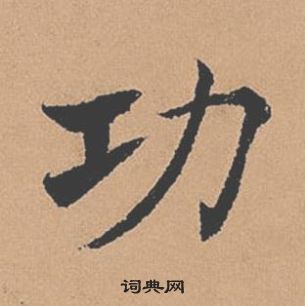 功
词典网